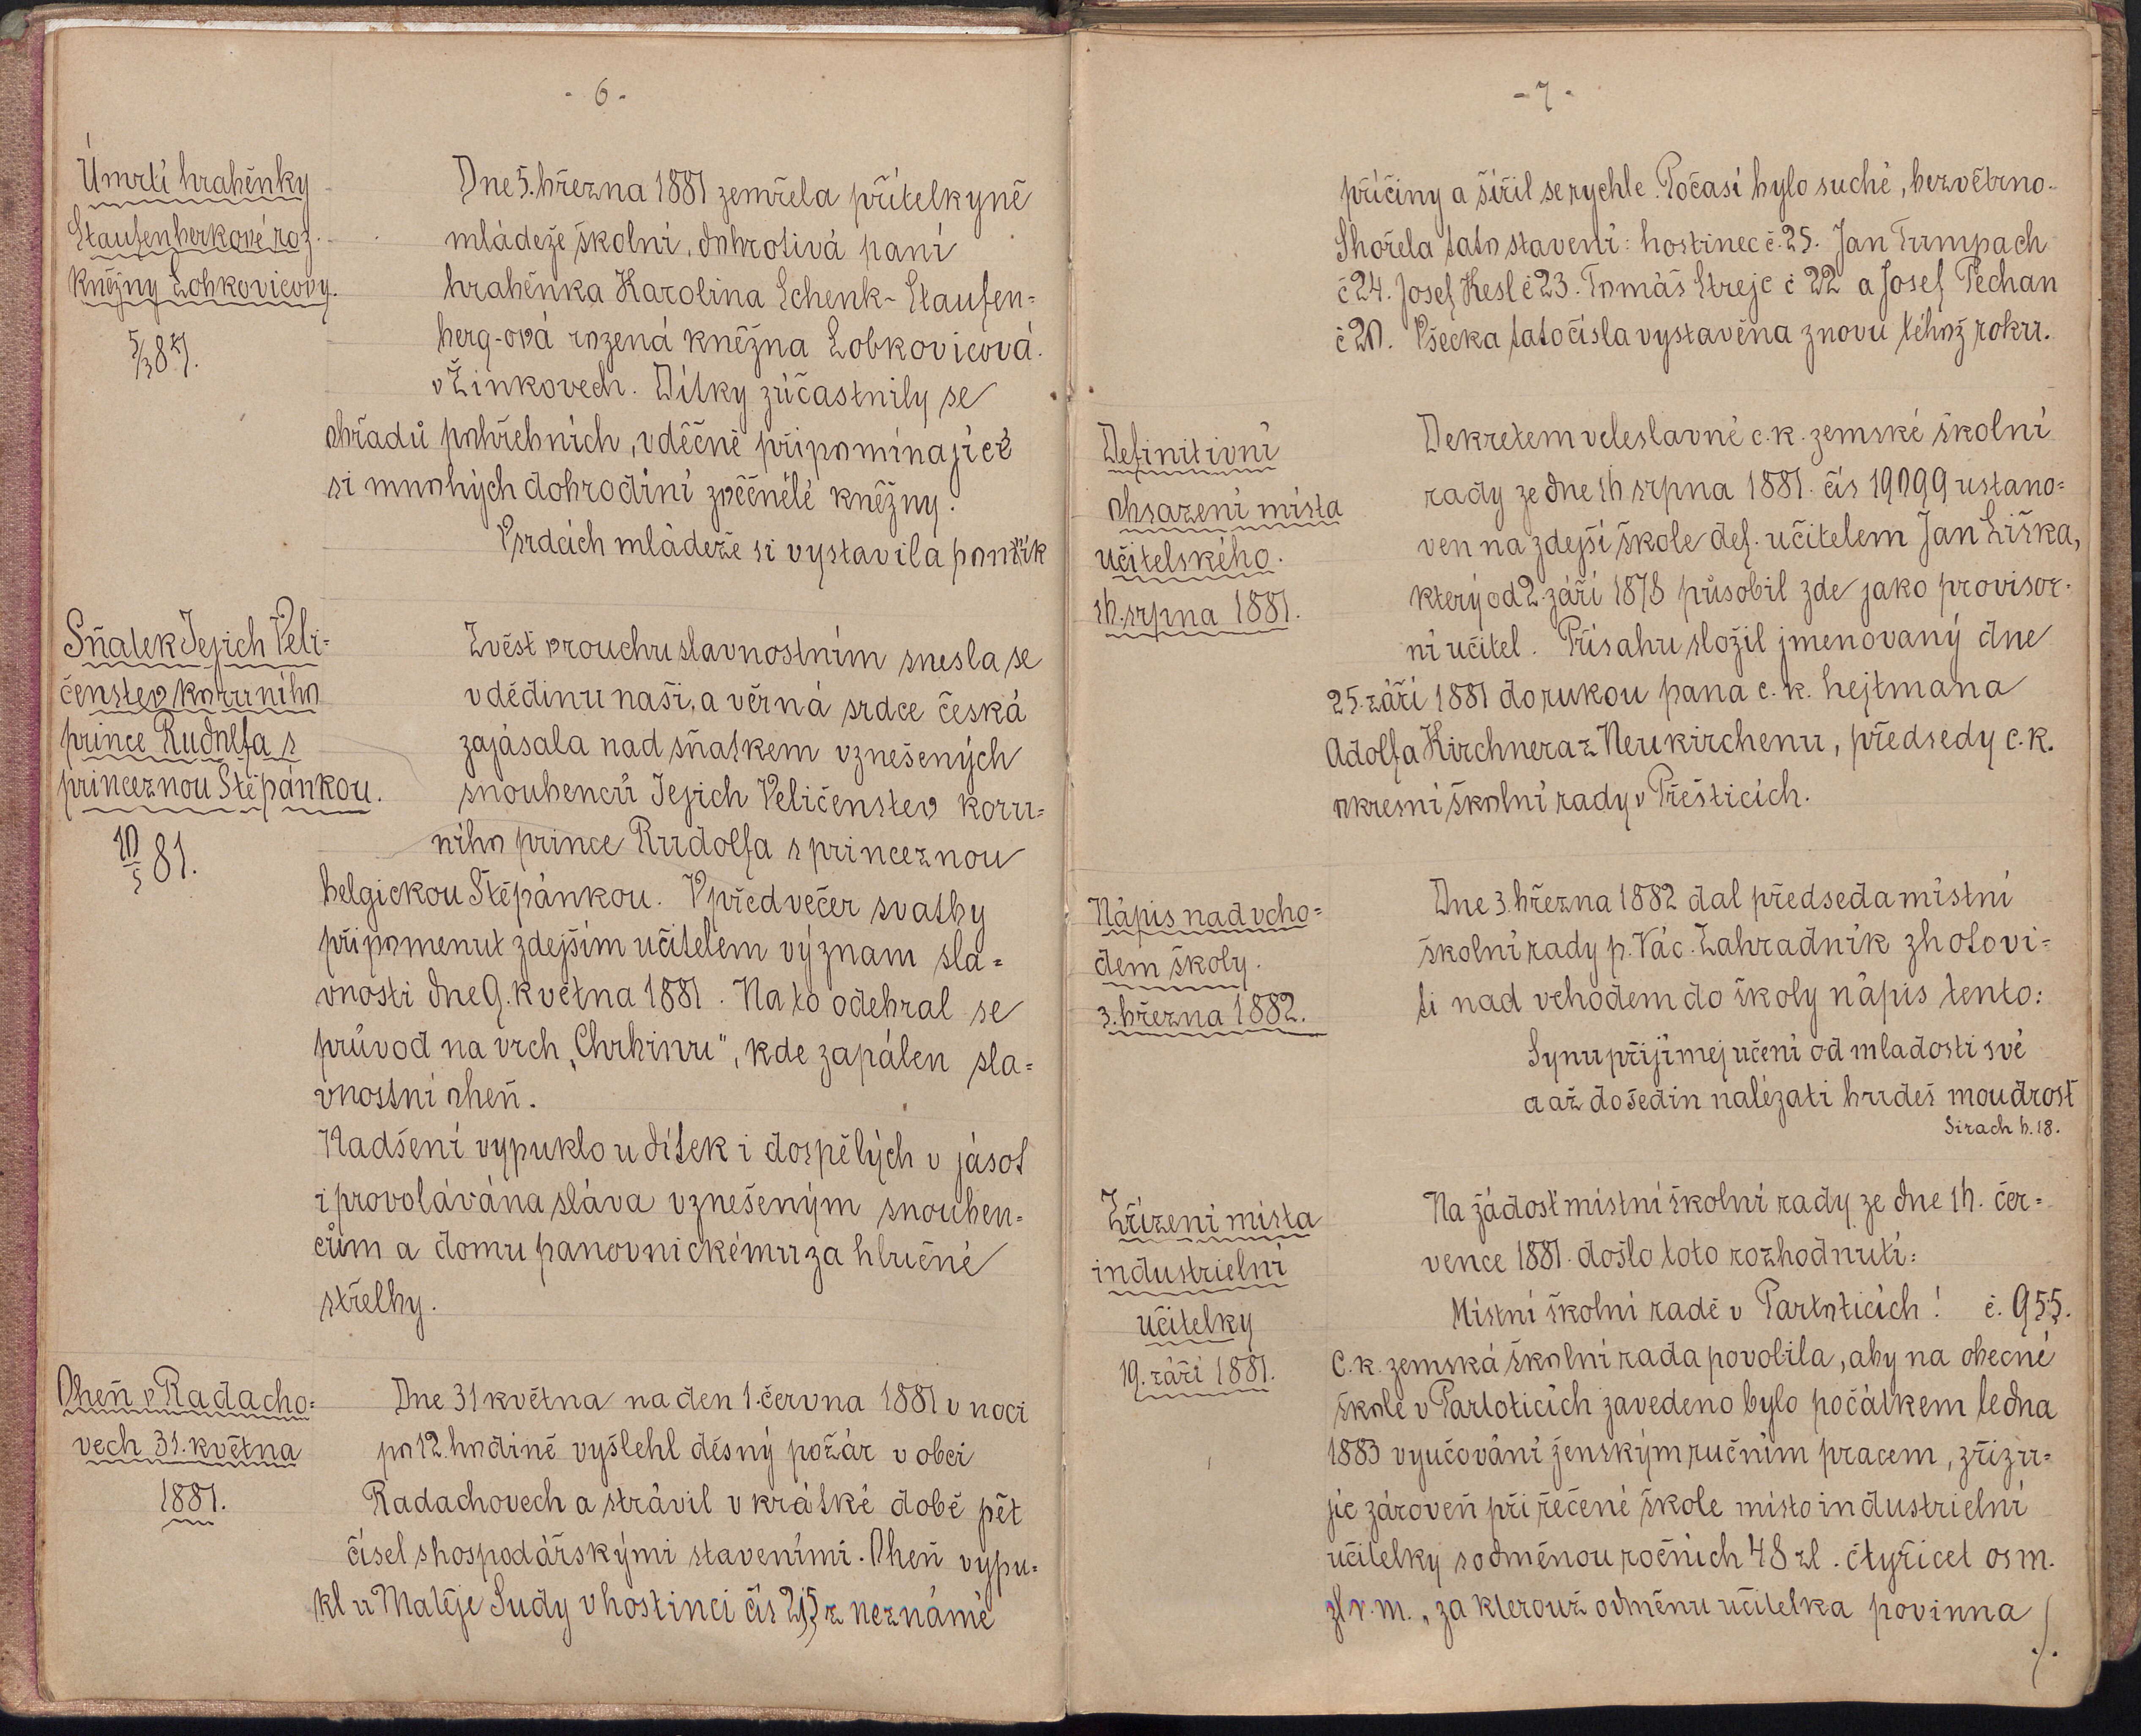 - 6 -
Úmrtí hraběnky
Staufenberkové roz.
kněžny Lobkovicovy.
5/3 81.
Dne 5. března 1881 zemřela přítelkyně
mládeže školní, dobrotivá paní
hraběnka Karolina Schenk-Staufen-
berg-ová rozená kněžna Lobkovicová
v Žinkovech. Dítky zúčastnily se
obřadů pohřebních, vděčně připomínajíce
si mnohých dobrodiní zvěčnělé kněžny.
V srdcích mládeže si vystavila pomník
Sňatek Jejich Veli-
čenstev koruního
prince Rudolfa s
princeznou Štěpánkou.
10/5 81.
Zvěst v rouchu slavnostním snesla se
v dědinu naši, a věrná srdce česká
zajásala nad sňatkem vznešených
snoubenců Jejich Veličenstev koru-
ního prince Rudolfa s princeznou
belgickou Štěpánkou. V předvečer svatby
připomenut zdejším učitelem význam sla-
vnosti dne 9. května 1881. Na to odebral se
průvod na vrch „Chrbinu", kde zapálen sla-
vnostní oheň.
Nadšení vypuklo u dítek i dospělých v jásot
i provolávána sláva vznešeným snouben-
cům a domu panovnickému za hlučné
střelby.
Oheň v Radacho-
vech 31. května
1881.
Dne 31 května na den 1. června 1881 v noci
po 12. hodině vyšlehl děsný požár v obci
Radachovech a strávil v krátké době pět
čísel s hospodářskými staveními. Oheň vypu-
kl u Matěje Sudy v hostinci čís 25 z neznámé
- 7 -
příčiny a šířil se rychle. Počasí bylo suché, bezvětrno.
Shořela tato stavení: hostinec č. 25. Jan Trmpach
č 24. Josef Kesl č 23. Tomáš Strejc č 22 a Josef Pechan
č 20. Všecka tato čísla vystavěna znovu téhož roku.
Definitivní
obsazení místa
učitelského.
16. srpna 1881.
Dekretem veleslavné c. k. zemské školní
rady ze dne 16 srpna 1881. čís 19099 ustano-
ven na zdejší škole def. učitelem Jan Liška,
který od 2. září 1878 působil zde jako provisor-
ní učitel. Přísahu složil jmenovaný dne
25. září 1881 do rukou pana c. k. hejtmana
Adolfa Kirchnera z Neukirchenu, předsedy c. k.
okresní školní rady v Přešticích.
Nápis nad vcho-
dem školy.
3. března 1882.
Dne 3. března 1882 dal předseda místní
školní rady p. Vác. Zahradník zhotovi-
ti nad vchodem do školy nápis tento:
Synu přijímej učení od mladosti své
a až do šedin nalézati budeš moudrost
Sirach 6. 18.
Zřízení místa
industrielní
učitelky
19. září 1881.
Na žádost místní školní rady ze dne 16. čer-
vence 1881. došlo toto rozhodnutí:
Místní školní radě v Partoticích! č. 955.
C. k. zemská školní rada povolila, aby na obecné
škole v Partoticích zavedeno bylo počátkem ledna
1883 vyučování ženským ručním pracem, zřizu-
jíc zároveň při řečené škole místo industrielní
učitelky s odměnou ročních 48 zl. čtyřicet osm.
zl r. m., za kterouž odměnu učitelka povinna
./.